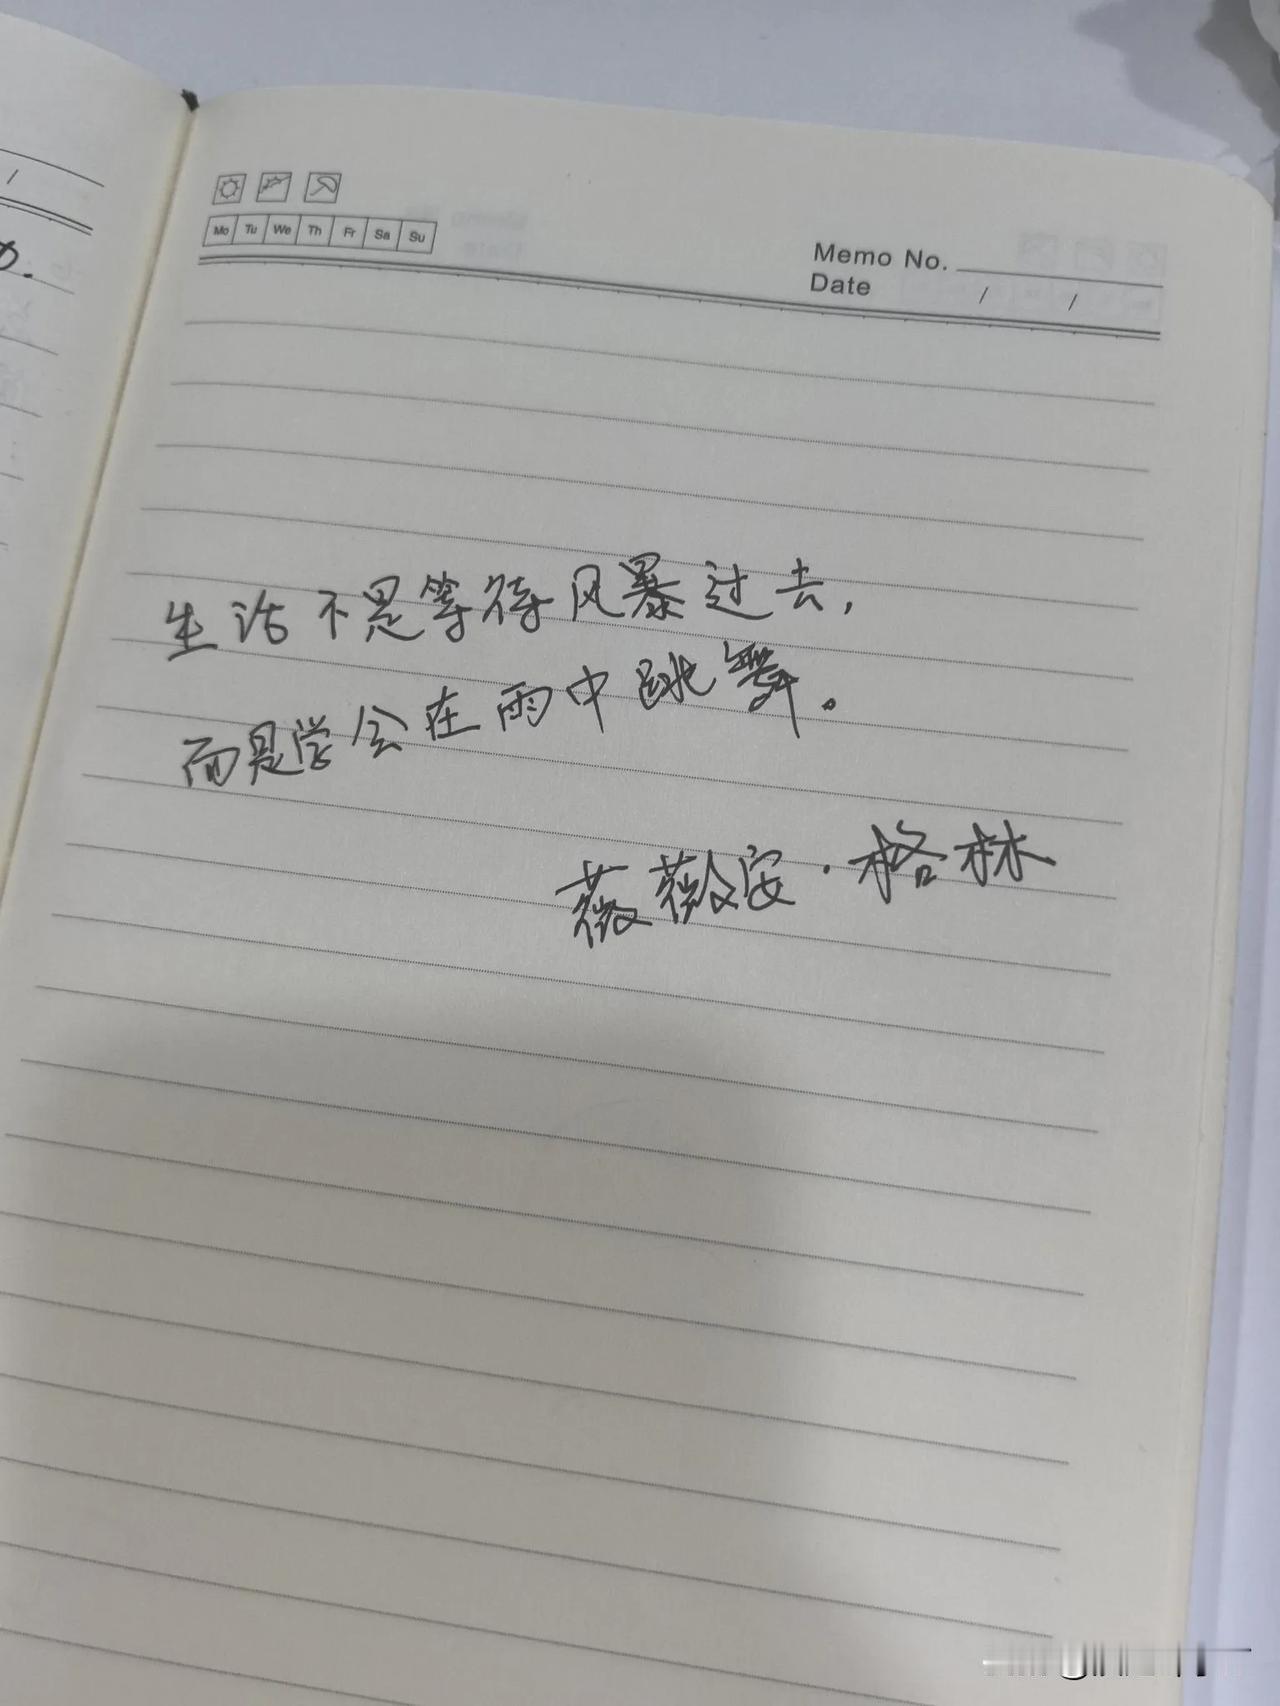 Mo Tu We Th Fr Sa Su
Memo No.
Date / /
生活不是等待风暴过去，
而是学会在雨中跳舞。
薇薇安·格林